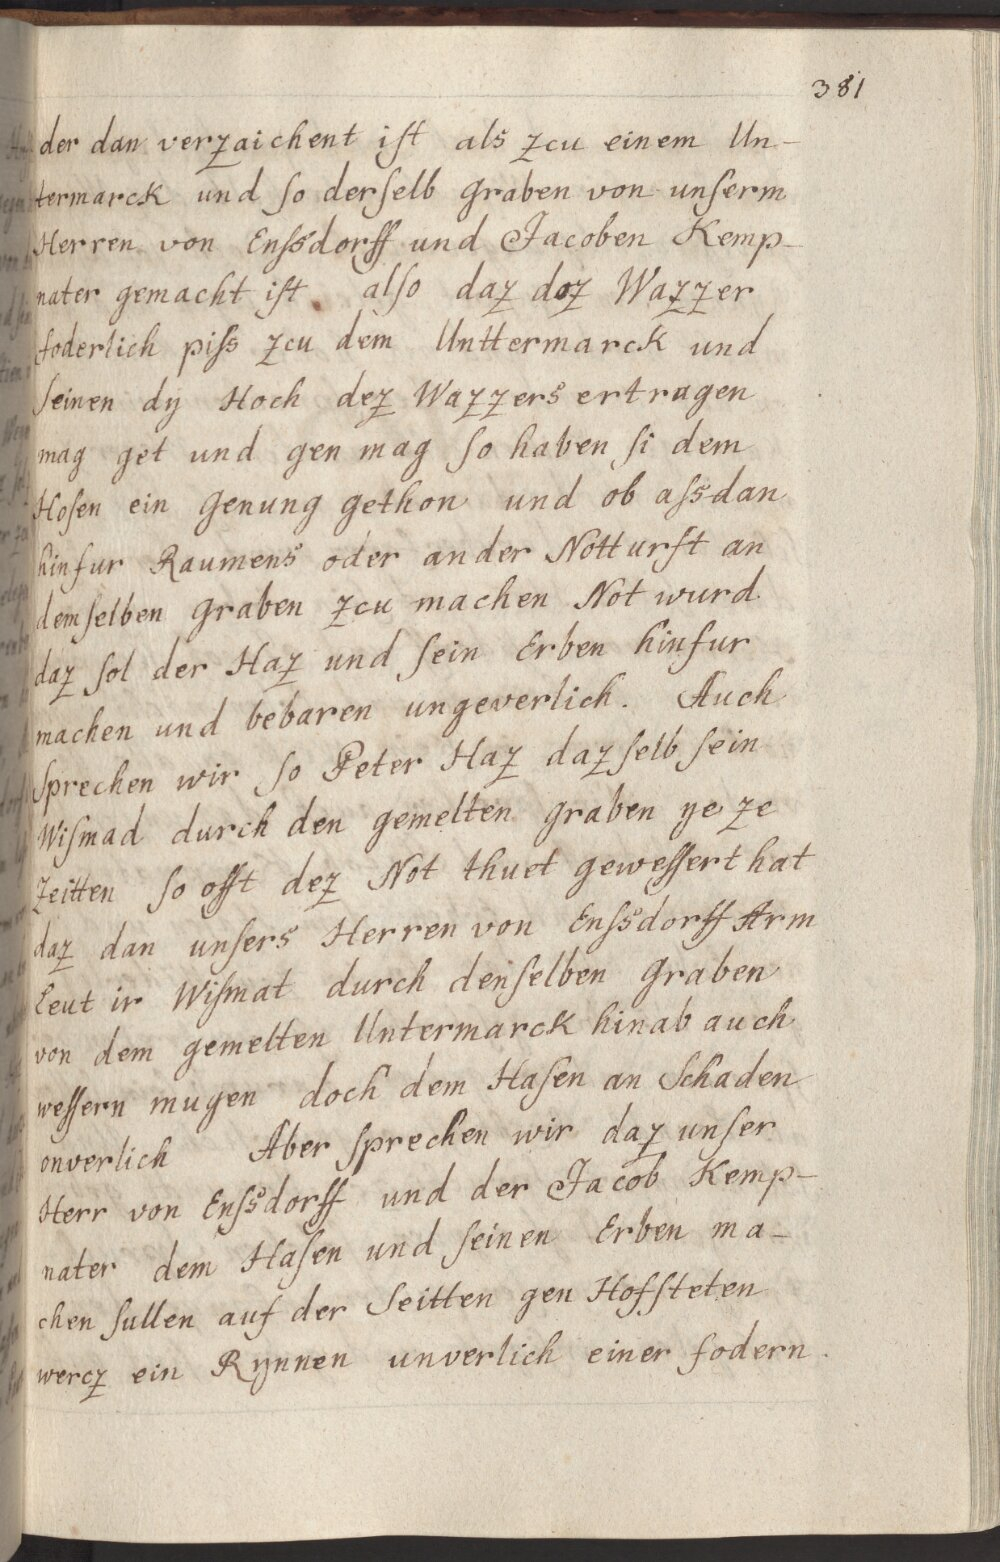 381
der dan verzaichent ist als zcu einem Un-
termarck und so derselb graben von unserm
Herren von Enssdorff und Jacoben Kemp-
nater gemacht ist also daz doz Wazzer
foderlich piss zcu dem Unttermarck und
seinen dij Hoch dez Wazzers ertragen
mag get und gen mag so haben si dem
Hosen ein Genung gethon und ob assdan
hinfur Raumens oder ander Notturft an
demselben graben zcu machen Not wurd
daz sol der Haz und sein Erben hinfur
machen und bebaren ungeverlich. Auch
sprechen wir so Peter Haz daz selb sein
Wismad durch den gemelten graben ye ze
Zeitten so offt dez Not thuet gewessert hat
daz dan unsers Herren von Enssdorff Arm
Leut ir Wismat durch denselben graben
von dem gemelten Untermarck hinab auch
wessern mugen doch dem Hasen an Schaden
onverlich Aber sprechen wir daz unser
Herr von Enssdorff und der Jacob Kemp-
nater dem Hasen und seinen Erben ma-
chen sullen auf der Seitten gen Hofsteten
wercz ein Rynnen unverlich einer fodern